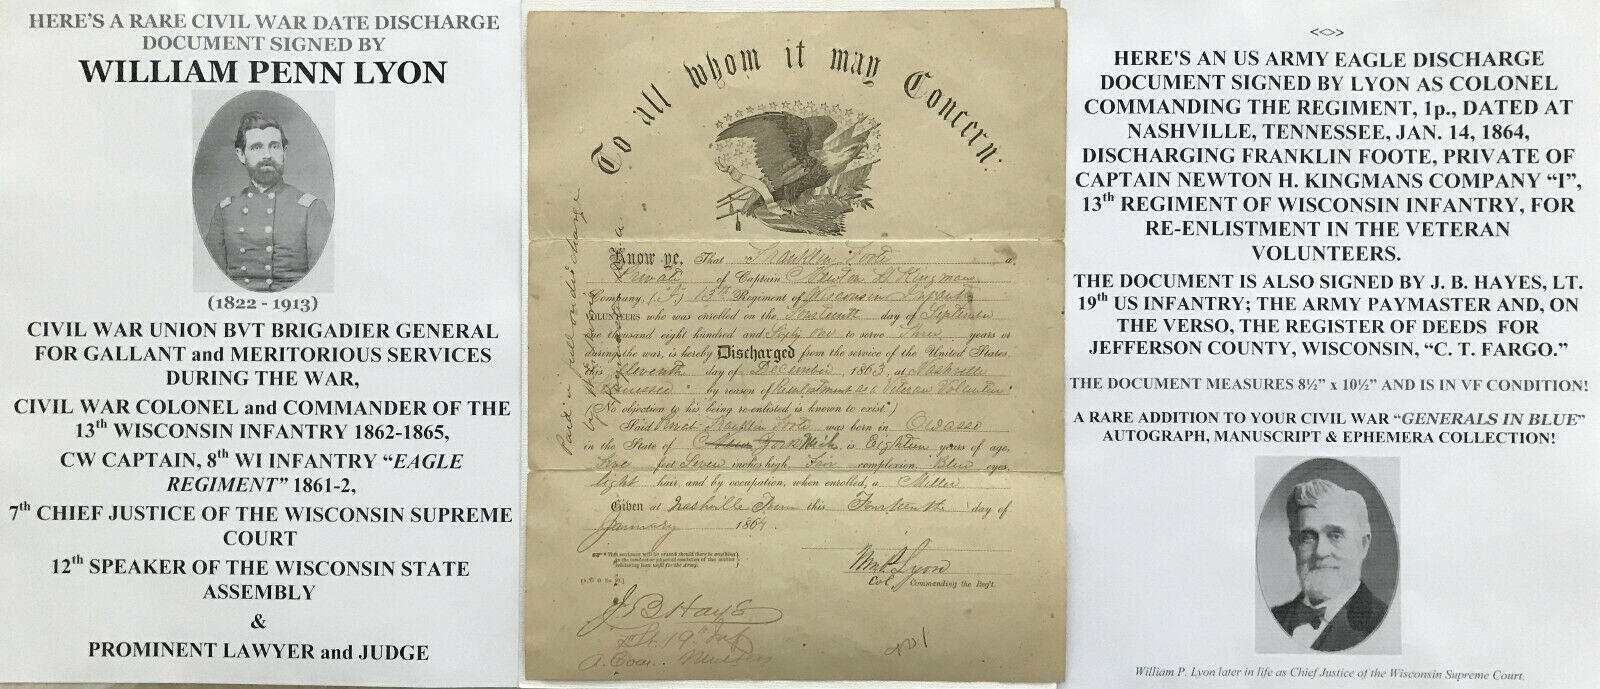 HERE'S A RARE CIVIL WAR DATE DISCHARGE
DOCUMENT SIGNED BY
WILLIAM PENN LYON
(1822 - 1913)
CIVIL WAR UNION BVT BRIGADIER GENERAL
FOR GALLANT and MERITORIOUS SERVICES
DURING THE WAR,
CIVIL WAR COLONEL and COMMANDER OF THE
13th WISCONSIN INFANTRY 1862-1865,
CW CAPTAIN, 8th WI INFANTRY "EAGLE
REGIMENT" 1861-2,
7th CHIEF JUSTICE OF THE WISCONSIN SUPREME
COURT
12th SPEAKER OF THE WISCONSIN STATE
ASSEMBLY
&
PROMINENT LAWYER and JUDGE
To all whom it may Concern:
Know ye, That Franklin Foote a
Private of Captain Newton H Kingmans
Company, (I,) 13th Regiment of Wisconsin Infantry
VOLUNTEERS who was enrolled on the day of September
one thousand eight hundred and Sixty one to serve Three years or
during the war, is hereby Discharged from the service of the United States
this Eleventh day of December 1863, at Nashville
Tennessee by reason of Reenlistment as a Veteran Volunteer
(No objection to his being re-enlisted is known to exist.)
Said Franklin Foote was born in Owasso
in the State of Mich, is Eighteen years of age,
Five feet Seven inches high, Fair complexion, Blue eyes,
light hair, and by occupation, when enrolled, a Miller
Given at Nashville Tenn this Fourteenth day of
January 1864.
Wm P. Lyon
Col. Commanding the Reg't.
J. B. Hays
Lt. 19th Inf
Paid in full on discharge
<<>>
HERE'S AN US ARMY EAGLE DISCHARGE
DOCUMENT SIGNED BY LYON AS COLONEL
COMMANDING THE REGIMENT, 1p., DATED AT
NASHVILLE, TENNESSEE, JAN. 14, 1864,
DISCHARGING FRANKLIN FOOTE, PRIVATE OF
CAPTAIN NEWTON H. KINGMANS COMPANY "I",
13th REGIMENT OF WISCONSIN INFANTRY, FOR
RE-ENLISTMENT IN THE VETERAN
VOLUNTEERS.
THE DOCUMENT IS ALSO SIGNED BY J. B. HAYES, LT.
19th US INFANTRY; THE ARMY PAYMASTER AND, ON
THE VERSO, THE REGISTER OF DEEDS FOR
JEFFERSON COUNTY, WISCONSIN, "C. T. FARGO."
THE DOCUMENT MEASURES 8½" x 10½" AND IS IN VF CONDITION!
A RARE ADDITION TO YOUR CIVIL WAR "GENERALS IN BLUE"
AUTOGRAPH, MANUSCRIPT & EPHEMERA COLLECTION!
William P. Lyon later in life as Chief Justice of the Wisconsin Supreme Court.